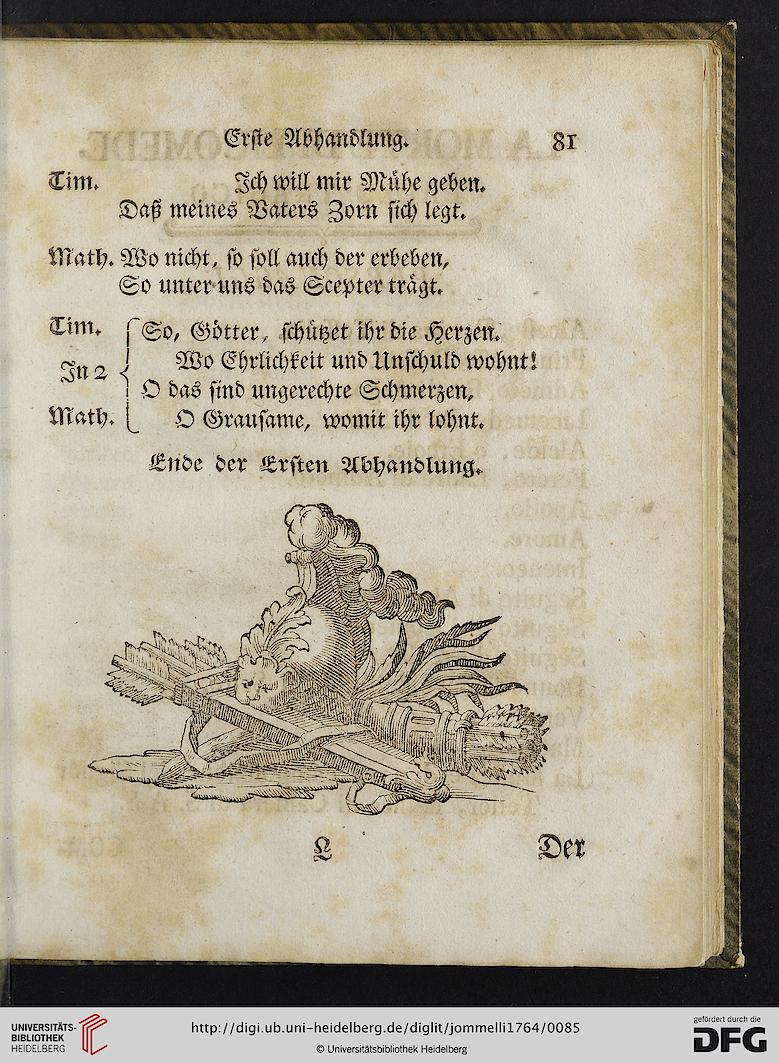 Erste Abhandlung. 81
Tim. Ich will mir Mühe geben.
Daß meines Vaters Zorn sich legt.
Math. Wo nicht, so soll auch der erbeben,
So unter uns das Scepter trägt.
Tim. So, Götter, schützet ihr die Herzen.
Wo Ehrlichkeit und Unschuld wohnt!
In 2
O das sind ungerechte Schmerzen,
Math. O Grausame, womit ihr lohnt.
Ende der Ersten Abhandlung.
L Der
UNIVERSITÄTS-
BIBLIOTHEK
HEIDELBERG
http://digi.ub.uni-heidelberg.de/diglit/jommelli1764/0085
© Universitätsbibliothek Heidelberg
gefördert durch die
DFG